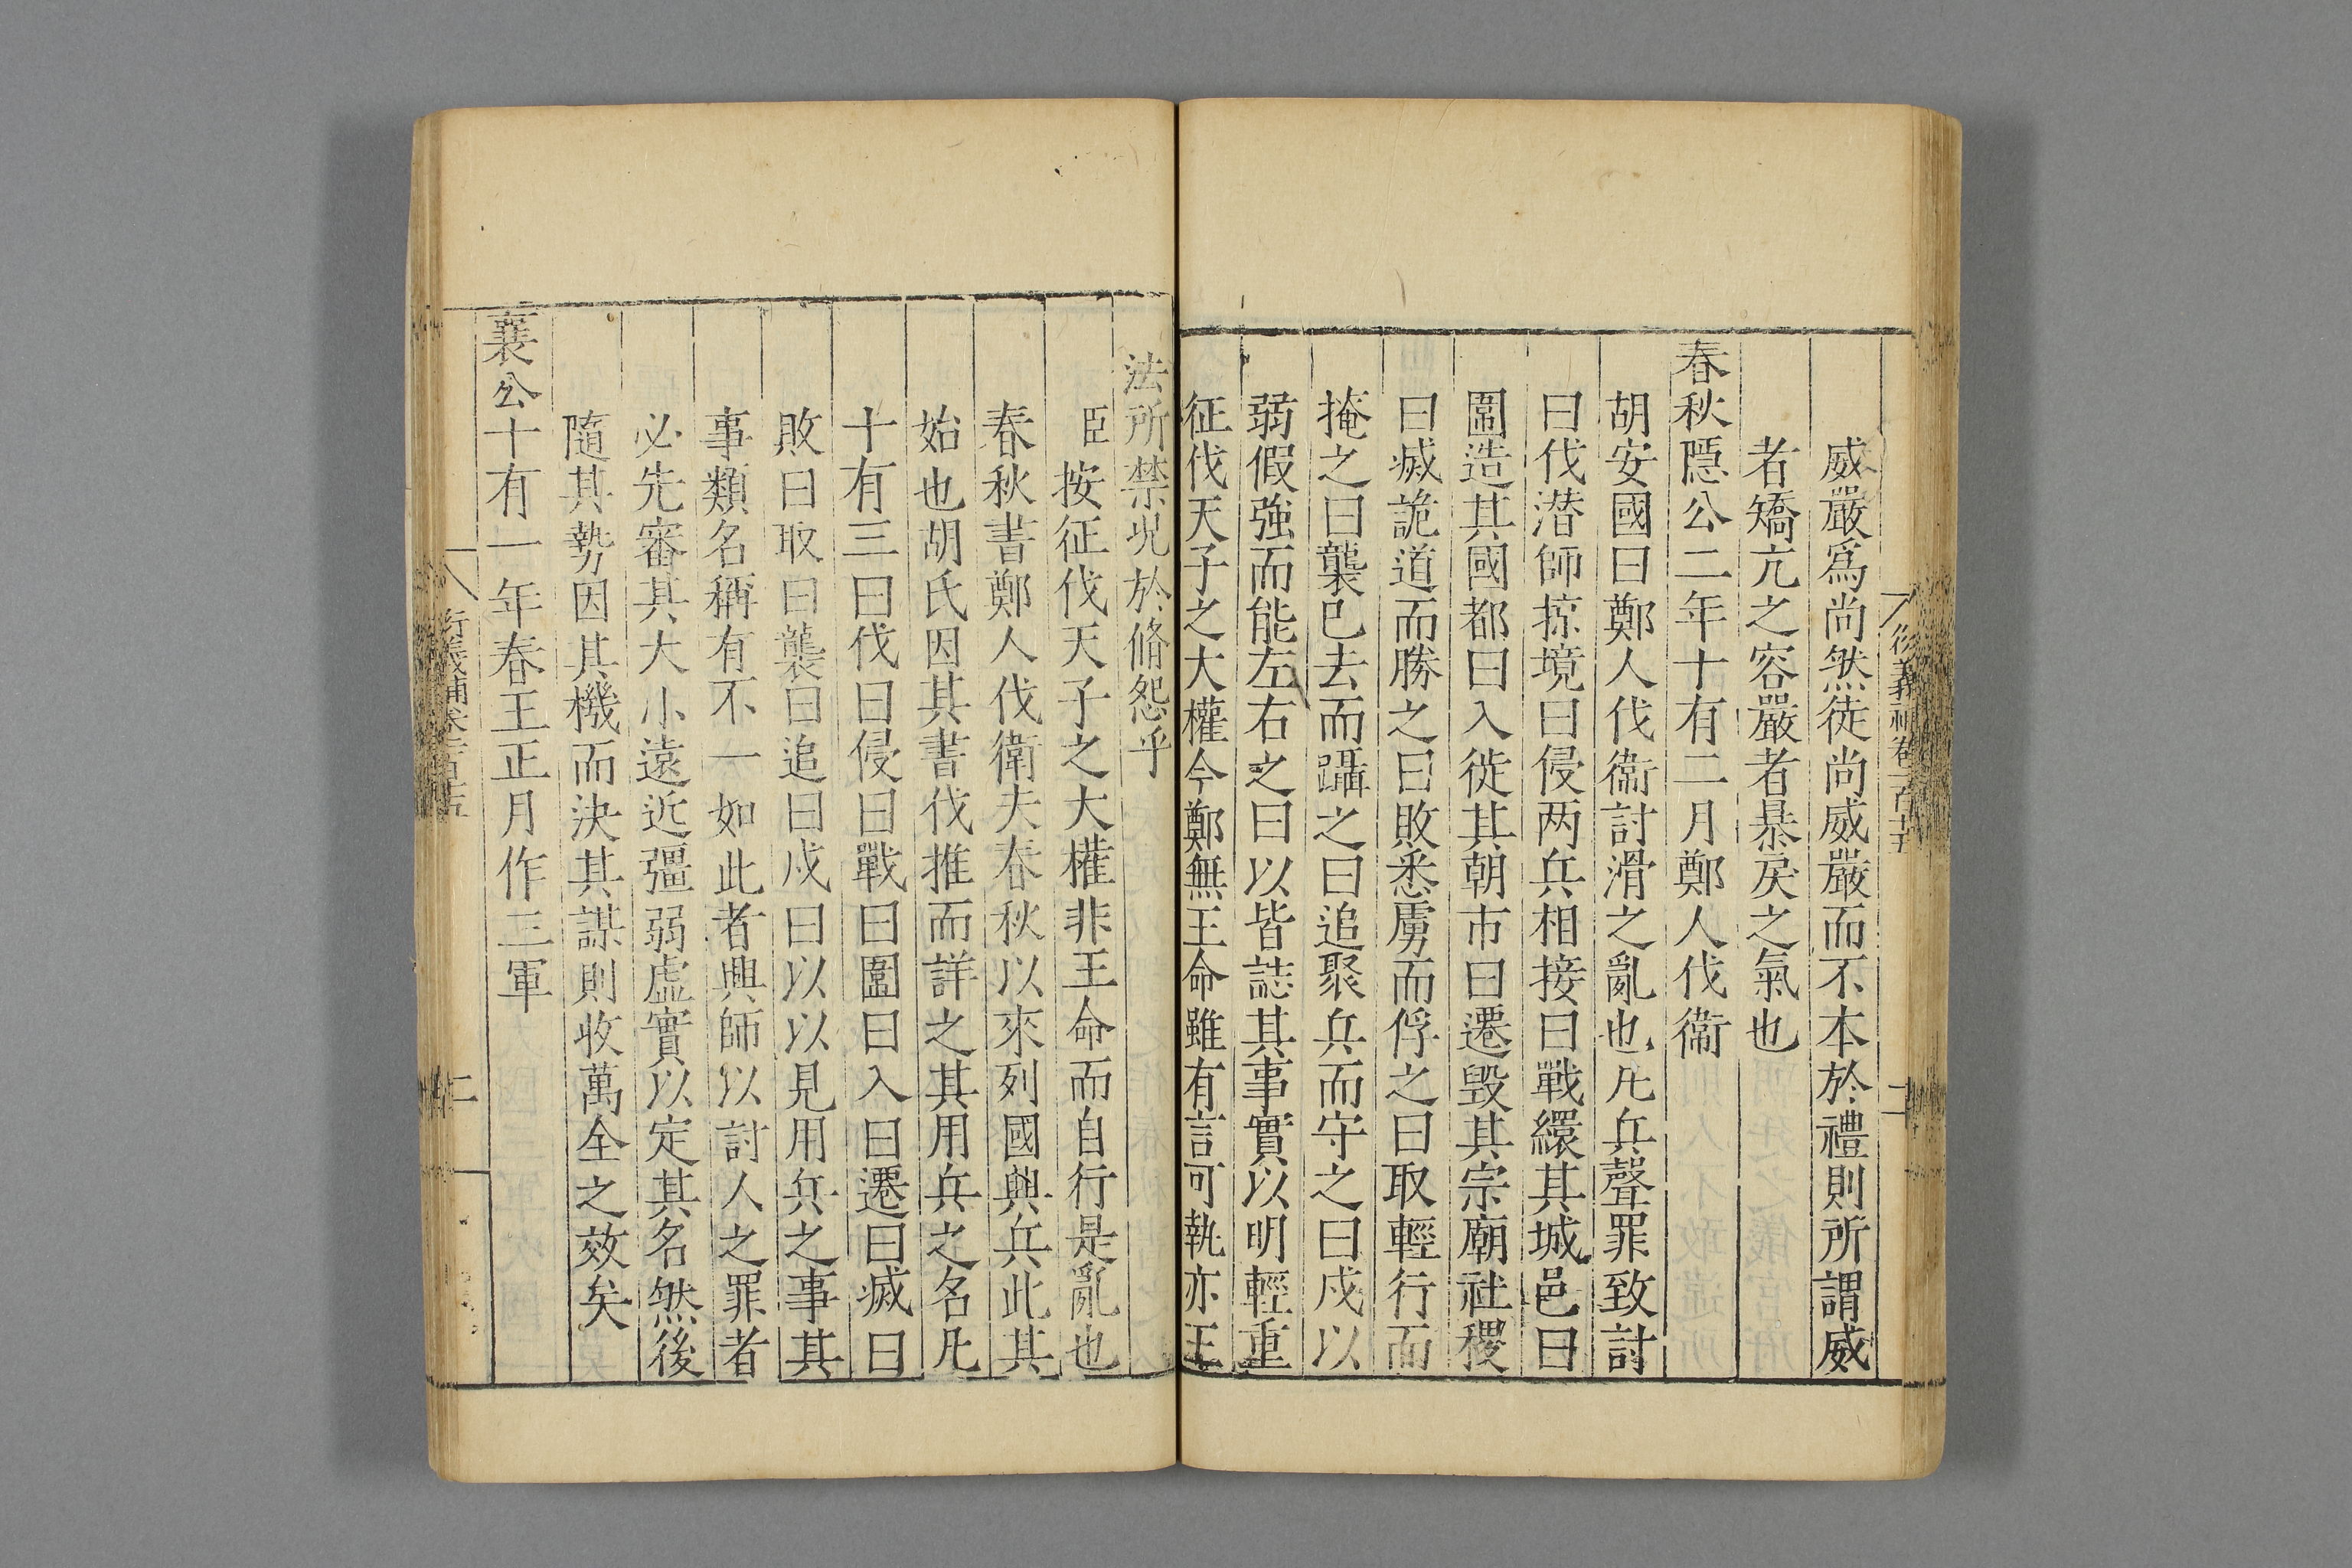 衍義補卷一百十五
二
威嚴爲尚然徒尚威嚴而不本於禮則所謂威
者矯亢之容嚴者暴戾之氣也
春秋隱公二年十有二月鄭人伐衞
胡安國曰鄭人伐衞討滑之亂也凡兵聲罪致討
曰伐潜師掠境曰侵两兵相接曰戰繯其城邑曰
圍造其國都曰入徙其朝市曰遷毀其宗廟社稷
曰滅詭道而勝之曰敗悉虜而俘之曰取輕行而
掩之曰襲已去而躡之曰追聚兵而守之曰戍以
弱假強而能左右之曰以皆誌其事實以明輕重
征伐天子之大權今鄭無王命雖有言可執亦王
法所禁况於脩怨乎
臣按征伐天子之大權非王命而自行是亂也
春秋書鄭人伐衛夫春秋以來列國興兵此其
始也胡氏因其書伐推而詳之其用兵之名凡
十有三曰伐曰侵曰戰曰圍曰入曰遷曰滅曰
敗曰取曰襲曰追曰戍曰以以見用兵之事其
事類名稱有不一如此者興師以討人之罪者
必先審其大小遠近彊弱虛實以定其名然後
隨其勢因其機而決其謀則收萬全之效矣
襄公十有一年春王正月作三軍
衍義補卷一百十五